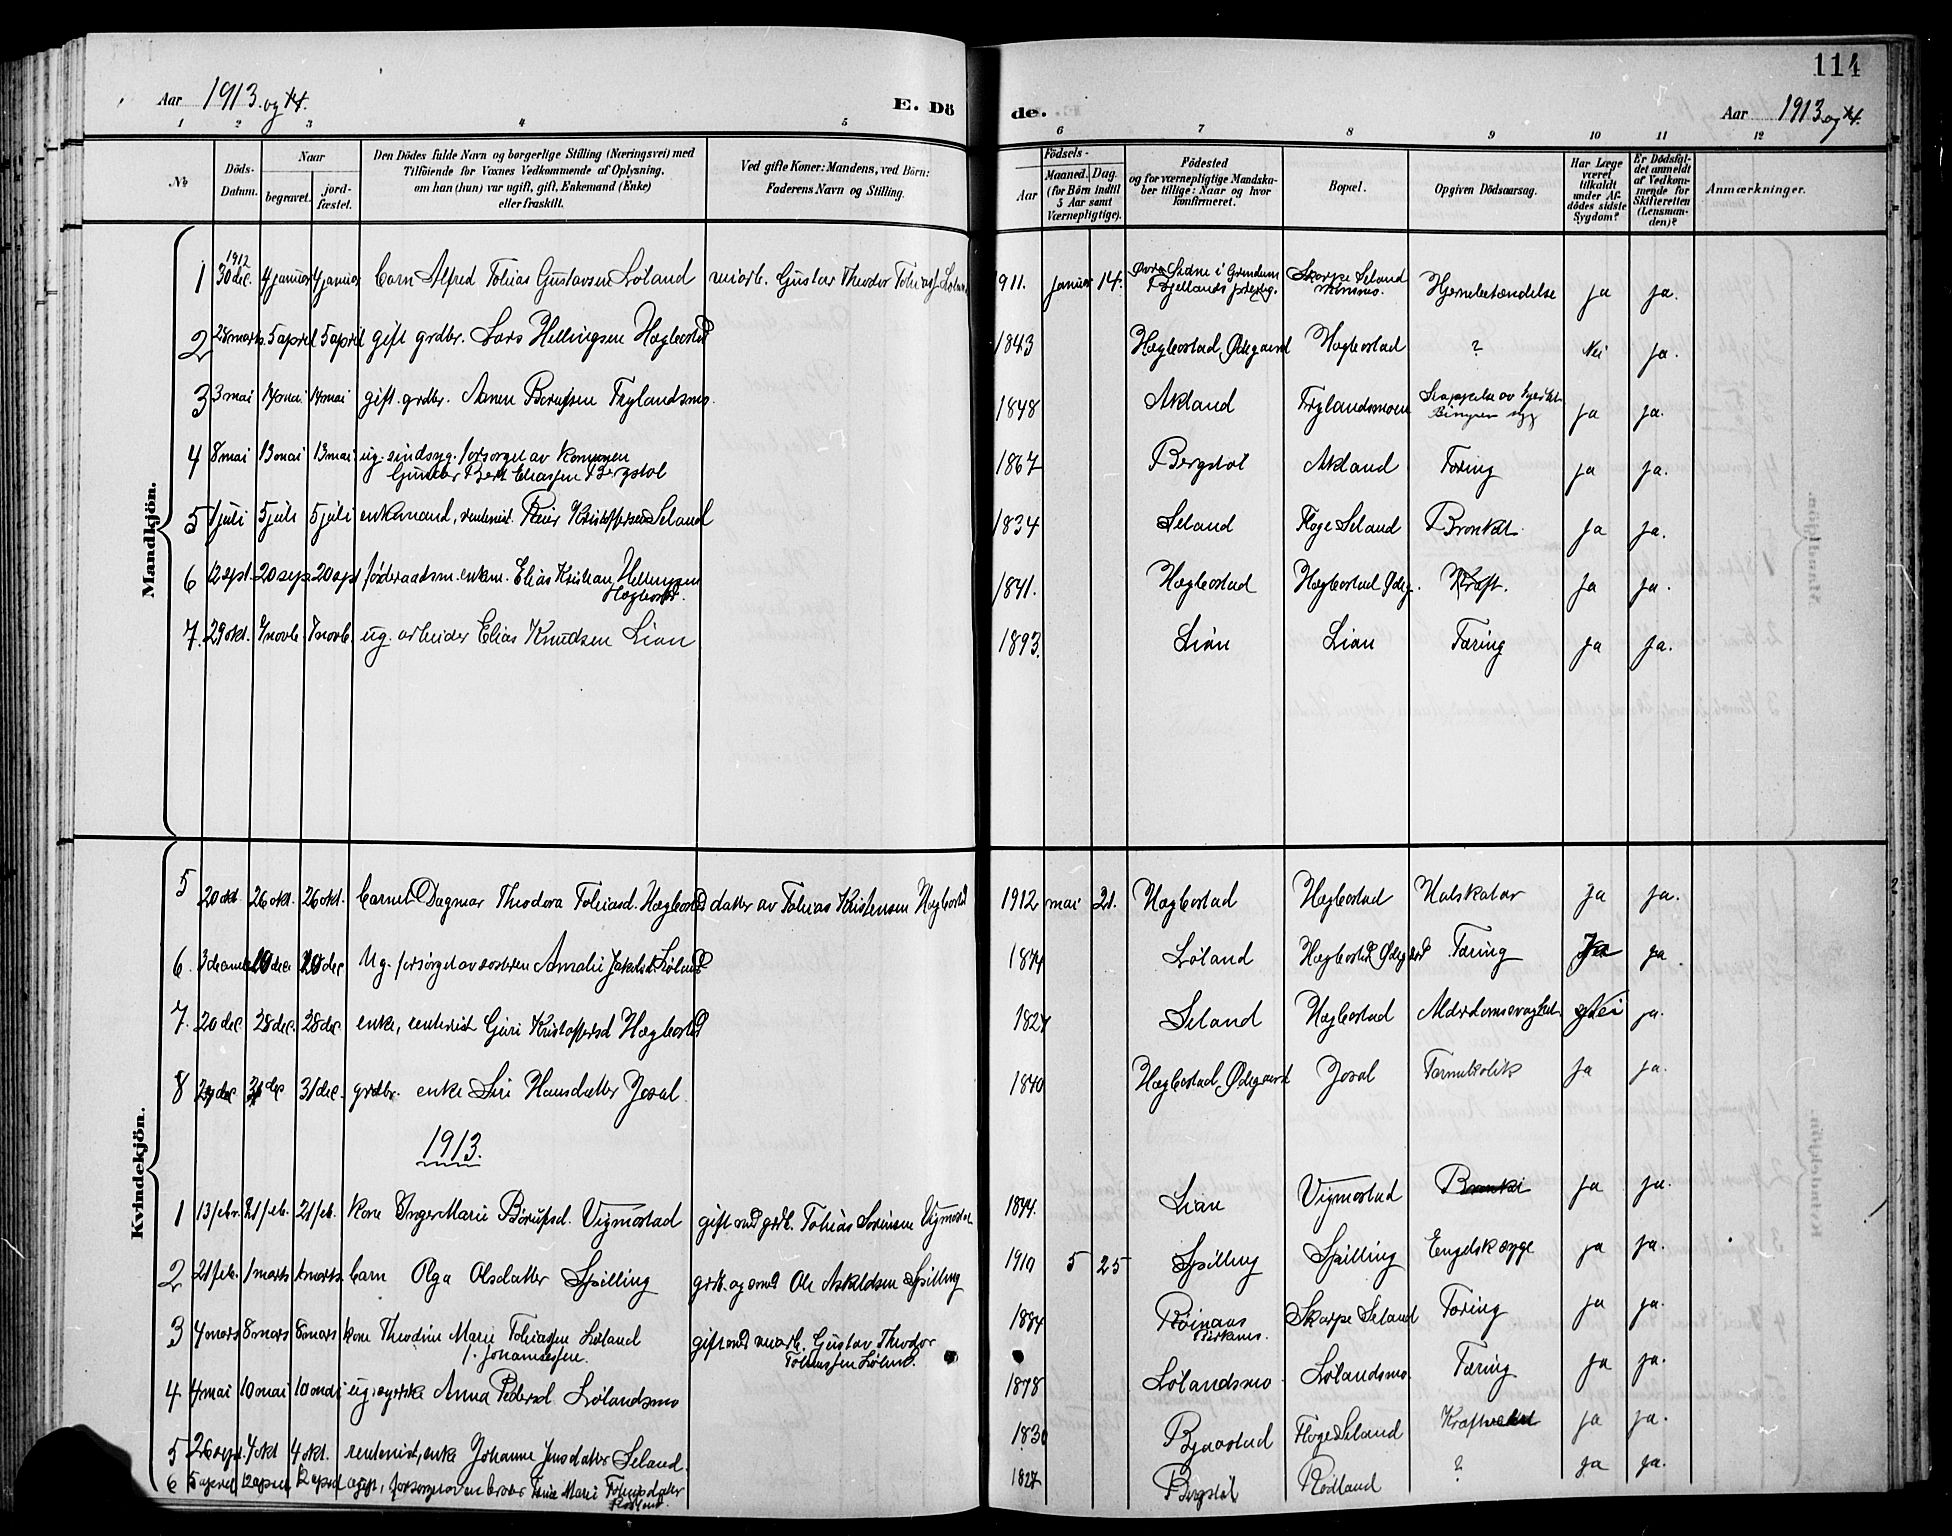 114
Aar 1913. og 14.
E. Döde.
Aar 1913 og 14.
1 2 3 4 5 6 7 8 9 10 11 12
No
Döds-Datum.
Naar
begravet.
jord-fæstet.
Den Dödes fulde Navn og borgerlige Stilling (Næringsvei) med
Tilföiende for Voxnes Vedkommende af Oplysning,
om han (hun) var ugift, gift, Enkemand (Enke)
eller fraskilt.
Ved gifte Koner: Mandens, ved Börn:
Faderens Navn og Stilling.
Födsels-
Aar
Maaned. Dag.
(for Börn indtil
5 Aar samt
Værnepligtige).
Födested
og for værnepligtige Mandska-
ber tillige: Naar og hvor
konfirmeret.
Bopæl.
Opgiven Dödsaarsag.
Har Læge
været
tilkaldt
under Af-
dödes sidste
Sygdom?
Er Dödsfal-
det anmeldt
af Vedkom-
mende for
Skifteretten
(Lensman-
den)?
Anmærkninger.
Mandkjön.
1 1912 30 dec. 4 januar 4 januar barn Alfred Tobias Gustavsen Löland Gustav Theodor Tobiass. Löland 1911. januar 14. Skarpe Seland Hjernebetændelse ja ja.
2 28 marts 5 april 5 april gift grdbr. Lars Hellingsen Hægbostad 1843 Hægbostad, Ödegaard Hægbostad ? Nei ja.
3 3 mai 14 mai 14 mai gift. grdbr. Anen Berulfsen Frylandsmo. 1848 Akland Frylandsmoen ja ja.
4 8 mai 13 mai 13 mai ug. sindsyg. forsørget av kommunen
Bergstøl 1867 Bergstøl Akland Tæring ja ja.
5 1 juli 5 juli 5 juli enkemand, rentenist. Reier Kristoffersen Seland 1834 Seland Høge Seland Bronkit. ja ja.
6 12 sept. 20 sep. 20 sept føderaadsm. enkem. Elias Kristian Hellingsen
Hægbostad. 1841. Hægbostad Hægbostad Ødeg. Kræft. ja ja.
7. 29 okt. 7 novb. 7 novb. ug. arbeider Elias Knudsen Lian 1893. Lian Lian Tæring ja ja.
Kvindekjön.
5 20 okt. 26 okt. 26 okt. barnet Dagmar Theodora Tobiasd. Hægbostad datter av Tobias Kristensen Hægbostad 1912 mai 21. Hægbostad Hægbostad Halskatar ja ja.
6. 3 decemb. dec dec Ug. forsørget av søsteren Amalie Jakobsd. Löland Löland Hægbostad Ødegaard Tæring Ja ja.
7. 20 dec 28 dec. 28 dec. enke, rentenist Guri Kristoffersd Hægbostad 1827 Seland Hægbostad Alderdomssvaghed. Nei ja.
8 dec dec 31 dec. grdbr. enke Siri Hansdatter Josal. 1840 Hægbostad, Ødegaard Josal Tarmkolik ja ja.
1913.
1 13 febr. 21 feb. 21 feb. kone Inger Marie Berulfsd. Vigmostad gift med grdb. Tobias Sörensen Vigmostad 1844. Lian Vigmostad ja ja.
2 21 feb. 1 marts 1 marts. barn Olga Olsdatter Spilling Ole Askildsen Spilling 1910 5 25 Spilling Spilling Engelsk syge ja ja.
3 4 mars 8 mars 8 mars kone Theodine Marie Tobiassen Löland
f. Johannessen. gift med Gustav Theodor
Tobiassen Löland. 1884 Röinaas
Birkenes. Skarpe Seland Tæring ja ja.
4. 4 mai 10 mai 10 mai ug. syerske Anna Pedersd. Lölandsmo 1878 Lölandsmo Lölandsmo. Tæring ja ja.
5 26 sept. 4 okt 4 okt. rentenist, enke Johanne Jensdatter Seland. 1830 Bjaastad Høge Seland ja ja.
6 5 april 12 april 12 april ugift, forsørget av en broder Marie
Rødland 1827 Bergstøl Rødland ? ja ja.